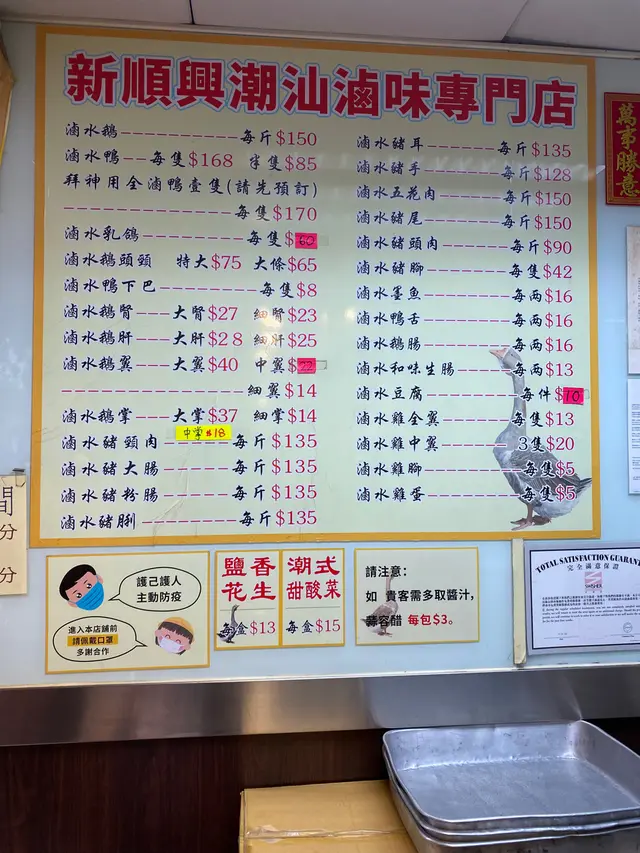 新順興潮汕滷味專門店
滷水鵝-----------每斤$150
滷水鴨---每隻$168 半隻$85
拜神用全滷鴨壹隻(請先預訂)
------------------每隻$170
滷水乳鴿-----------每隻$60
滷水鵝頭頸 特大$75 大條$65
滷水鴨下巴-----------每隻$8
滷水鵝腎----大腎$27 細腎$23
滷水鵝肝----大肝$28 細肝$25
滷水鵝翼----大翼$40 中翼$22
------------------細翼$14
滷水鵝掌----大掌$37 細掌$14
中掌$18
滷水豬頸肉---------每斤$135
滷水豬大腸---------每斤$135
滷水豬粉腸---------每斤$135
滷水豬脷-----------每斤$135
滷水豬耳---------每斤$135
滷水豬手---------每斤$128
滷水五花肉-------每斤$150
滷水豬尾---------每斤$150
滷水豬頭肉-------每斤$90
滷水豬腳---------每隻$42
滷水墨魚---------每両$16
滷水鴨舌---------每両$16
滷水鵝腸---------每両$16
滷水和味生腸-----每両$13
滷水豆腐---------每件$10
滷水雞全翼-------每隻$13
滷水雞中翼-------3隻$20
滷水雞腳---------每隻$5
滷水雞蛋---------每隻$5
萬事勝意
間
分
分
護己護人
主動防疫
進入本店舖前
請佩戴口罩
多謝合作
鹽香
花生
每盒$13
潮式
甜酸菜
每盒$15
請注意:
如 貴客需多取醬汁,
蒜容醋 每包$3。
TOTAL SATISFACTION GUARANT
完全滿意保證